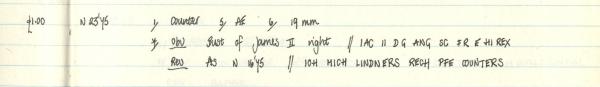 £1.00 N 23'45 1, Counter 5, AE 6, 19 mm
7, Obv Bust of James II right // IAC II D G ANG SC FR E HI REX
Rev As N 16'45 // IOH MICH LINDNERS RECH PFE COUNTERS